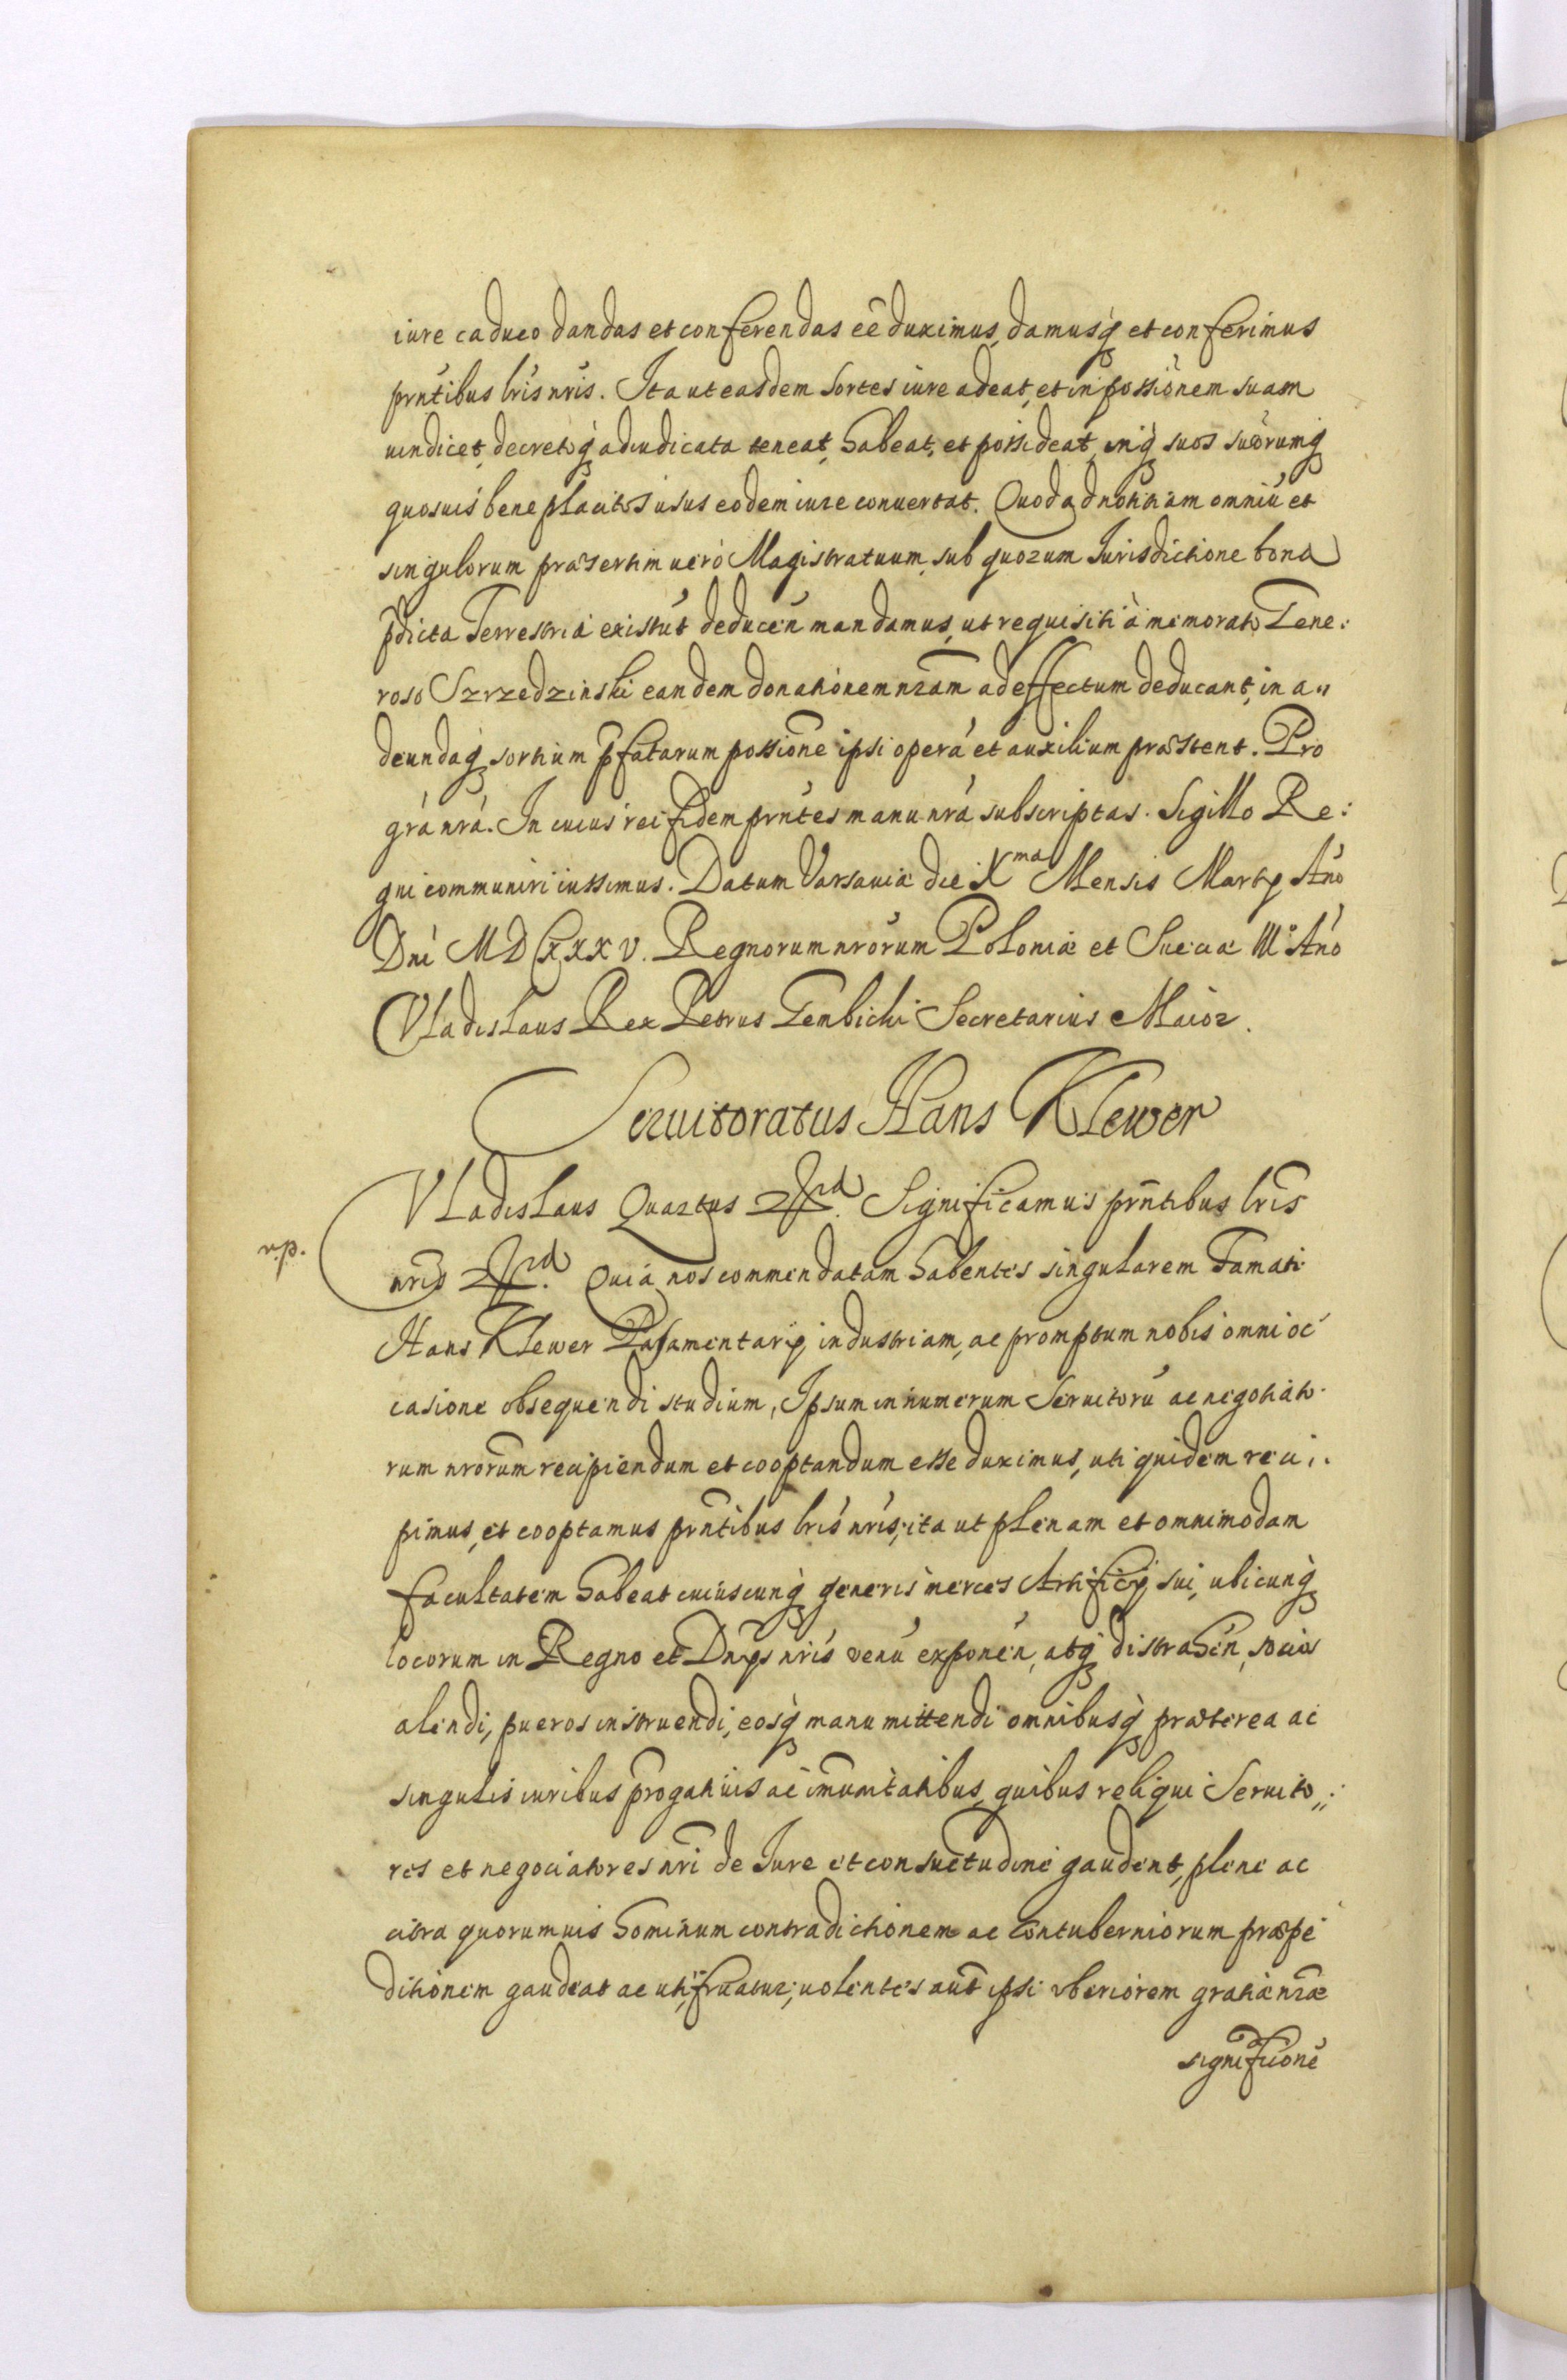 iure caduco dandas et conferendas eē duximus, damusq́ et conferimus
prńtibus lr̄is nr̄is. Ita ut easdem sortes iure adeat, et in possiōnem suam
uindicet, decretoq́ adiudicata teneat, habeat, et possideat, inq́ suos suōrumq́
quosuis bene placitos usus eodem iure conuertat. Quod ad notitiam omniū et
singulorum præsertim uerò Magistratuum, sub quorum Iurisdictione bona
p̄dicta Terrestria existūt deducen̄ mandamus, ut requisiti à memorato Gene:
roso Szrzedzinski eandem donatiōnem nr̄am ad effectum deducant, in a„
deundaq́ sortium p̄fatarum possiōne ipsi operā et auxilium præstent. Pro
gr̄a nr̄a. In cuius rei fidem prn̄tes manu nr̄a subscriptas. Sigillo Re:
gni communiri iussimus. Datum Varsauiæ die Xma Mensis Martij Ań̄o
Dnī MDCXXXV. Regnorum nr̄orum Poloniæ et Sueciæ III° Ań̄o
Vladislaus Rex Petrus Gembicki Secretarius Maior.
Seruitoratus Hans Klewer
Vladislaus Quartus &rd. Significamus prn̄tibus lr̄is
r.p.
nr̄is &rd. Quia nos commendatam habentes singularem Famati
Hans Klewer Pasamentarij, industriam, ac promptum nobis omni oc
casione obsequendi studium, Ipsum in numerum Seruitorū ac negotiato
rum nr̄orum recipiendum et cooptandum esse duximus, uti quidem reci:
pimus, et cooptamus prn̄tibus lr̄is nr̄is, ita ut plenam et omnimodam
facultatem habeat cuiuscunq́ generis merces Artificij sui, ubicunq́
locorum in Regno et Dn̄ijs nr̄is venū exponen̄, atq́ distrahen̄, socios
alendi, pueros instruendi, eosq́ manu mittendi omnibusq́ præterea ac
singulis iuribus p̄rogatiuis ac im̄unitatibus, quibus reliqui Seruito„:
res et negociatores nr̄i de Iure et consuetudine gaudent, plene ac
citra quorumuis hominum contradictionem ac contuberniorum præpe
ditionem gaudeat ac uti fruatur, uolentes aūt ipsi vberiorem gratiæ nr̄æ
signif̄icōne